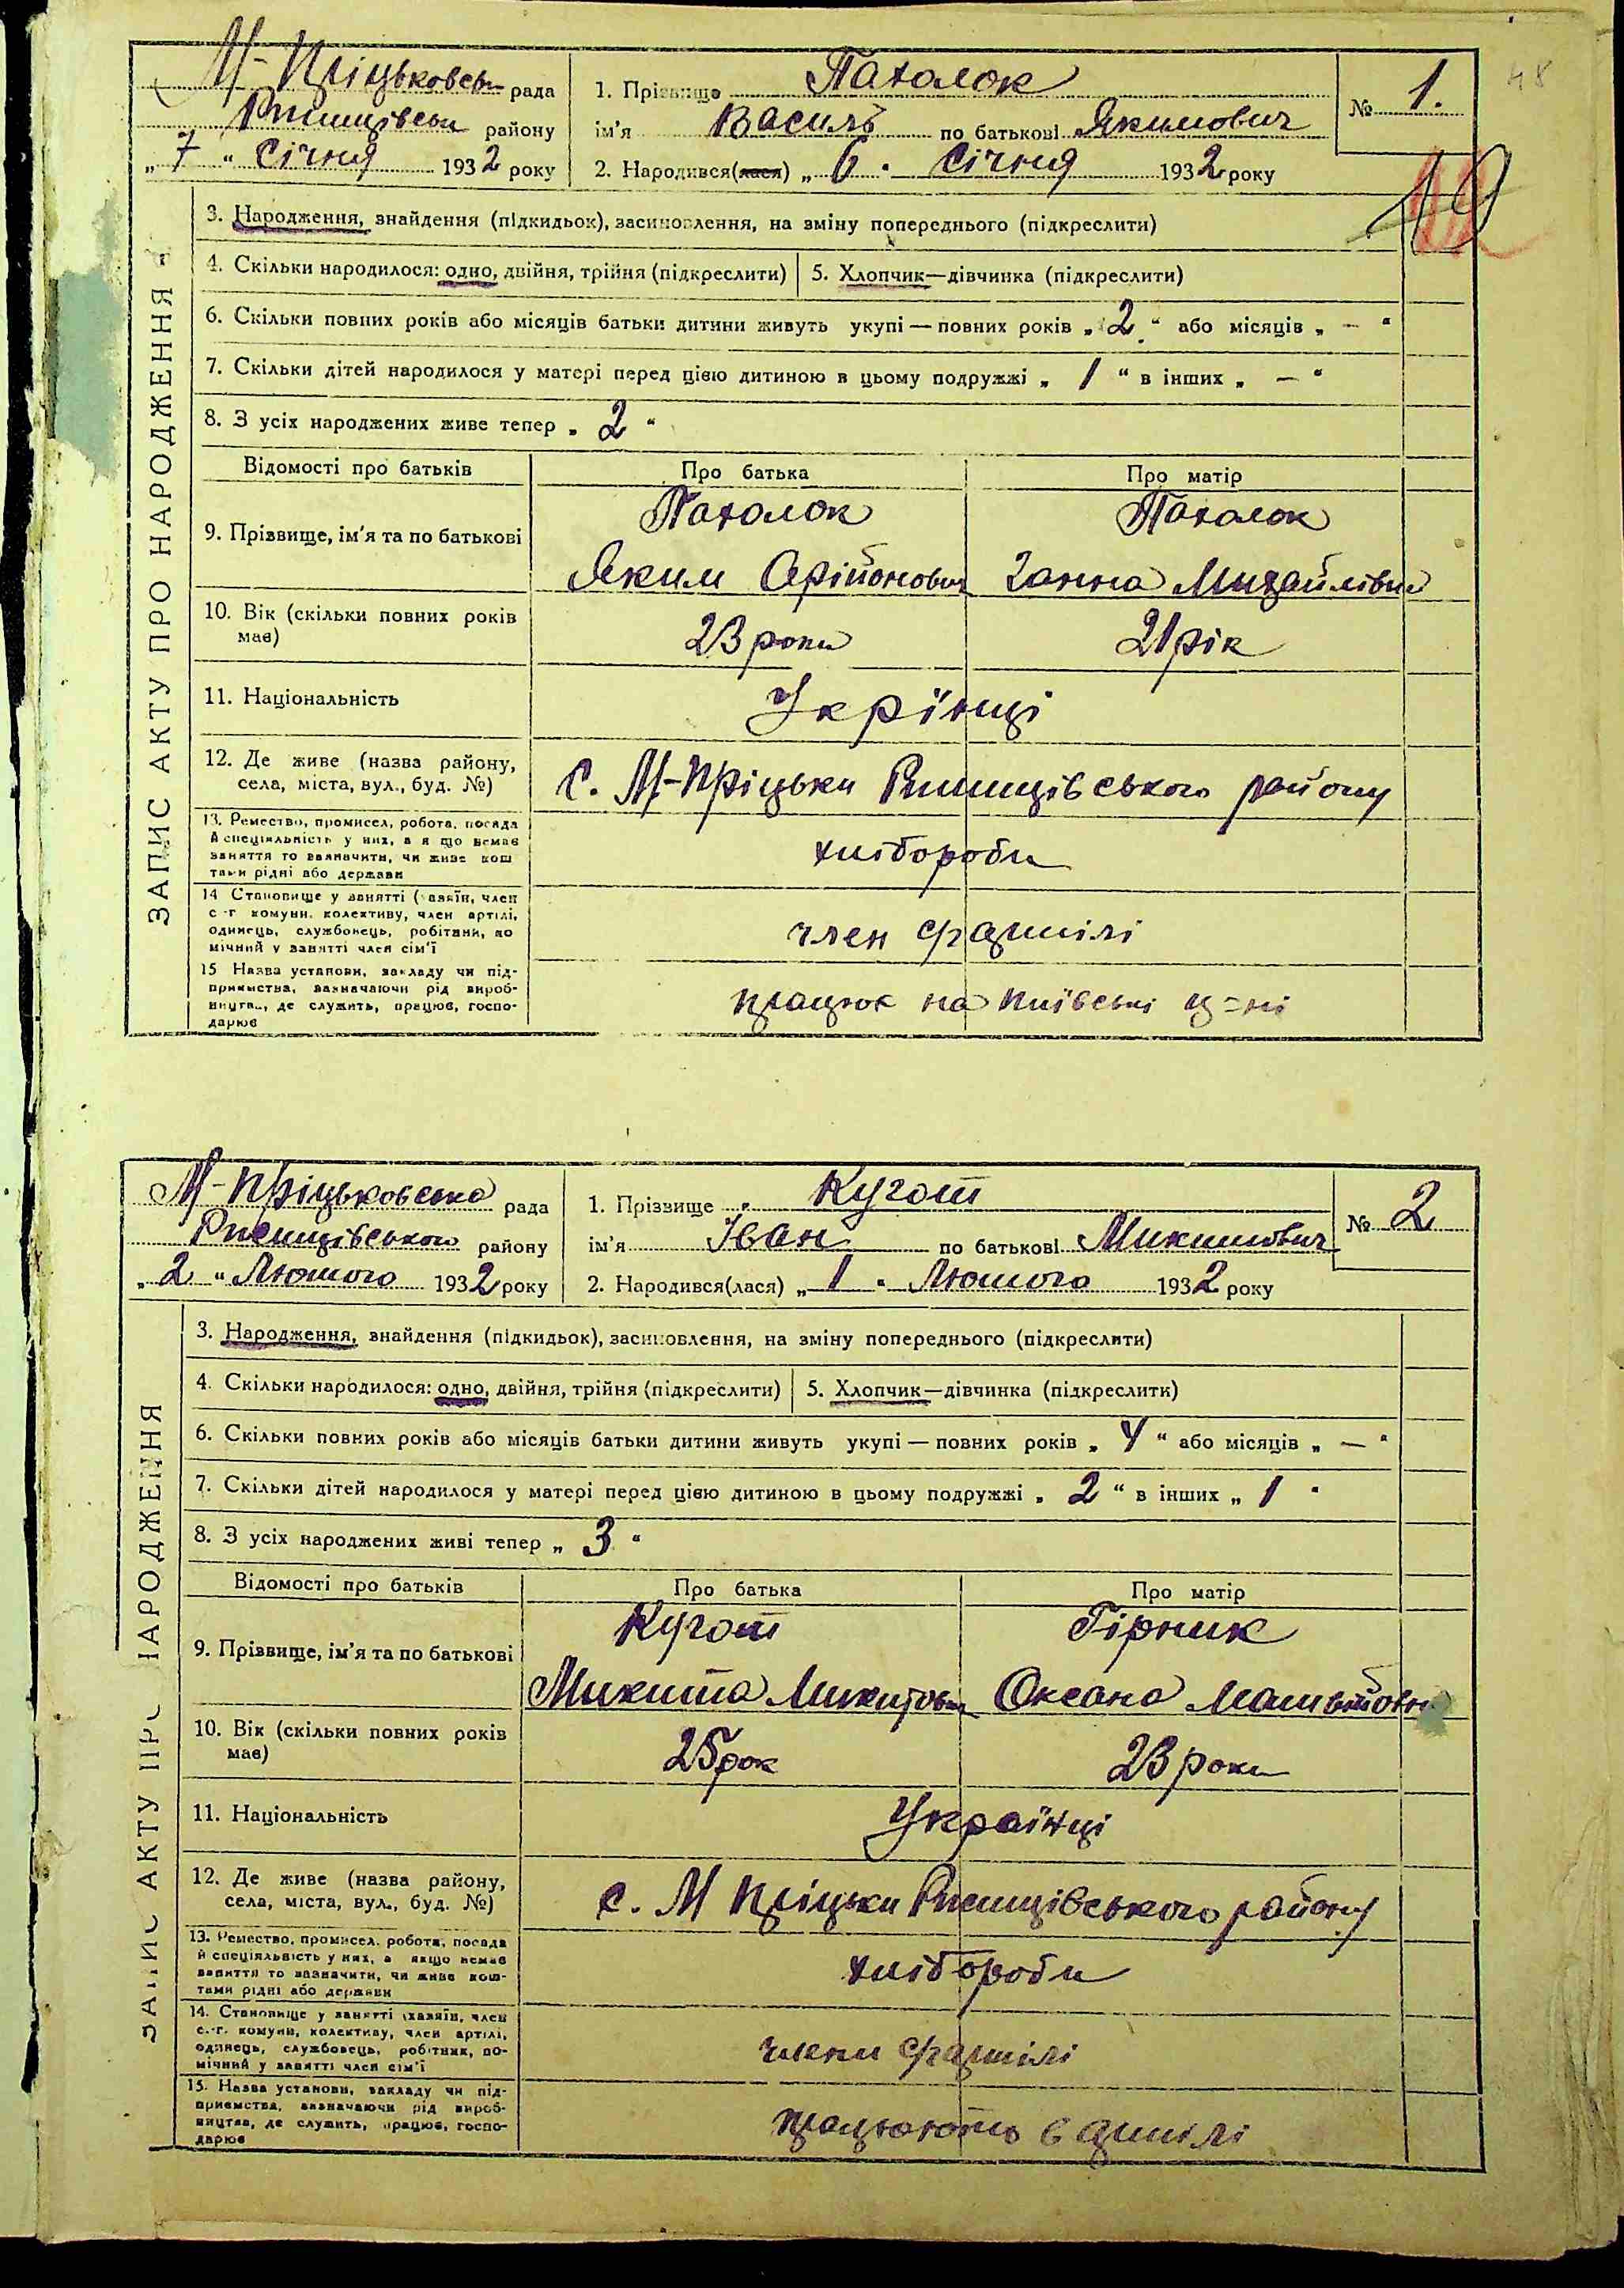 М-Пріцьковськ рада
Ржищівськ району
„ 7 “ Січня 1932 року
1. Прізвище Пахолок
ім'я Василь по батькові Якимович
2. Народився(лася) „ 6 “ Січня 1932 року
№ 1.
48
19
ЗАПИС АКТУ ПРО НАРОДЖЕННЯ
3. Народження, знайдення (підкидьок), засиновлення, на зміну попереднього (підкреслити)
4. Скільки народилося: одно, двійня, трійня (підкреслити)
5. Хлопчик—дівчинка (підкреслити)
6. Скільки повних років або місяців батьки дитини живуть укупі — повних років „ 2 “ або місяців „ — “
7. Скільки дітей народилося у матері перед цією дитиною в цьому подружжі „ 1 “ в інших „ — “
8. З усіх народжених живе тепер „ 2 “
Відомості про батьків
Про батька
Про матір
9. Прізвище, ім'я та по батькові
Пахолок
Яким Орійонович
Пахолок
Ганна Михайлівна
10. Вік (скільки повних років
має)
23 роки
21 рік
11. Національність
Укрїнці
12. Де живе (назва району,
села, міста, вул., буд. №)
с. М-Пріцьки Ржищівського району
13. Ремество, промисел, робота, посада
й спеціяльність у них, а я що немає
заняття то зазначити, чи живе кош
тами рідні або держави
хлібороби
14 Становище у занятті (хазяїн, член
с-г комуни, колективу, член артілі,
одинець, службовець, робітник, по
мічний у занятті член сім'ї
член
15 Назва установи, закладу чи під-
приємства, зазначаючи рід вироб-
ництва, де служить, працює, госпо-
дарює
працює на Київські ц-ні
М-Пріцьковська рада
Ржищівського району
„ 2 “ Лютого 1932 року
1. Прізвище Кугот
ім'я Іван по батькові Микитович
2. Народився(лася) „ 1 “ Лютого 1932 року
№ 2
ЗАПИС АКТУ ПРО НАРОДЖЕННЯ
3. Народження, знайдення (підкидьок), засиновлення, на зміну попереднього (підкреслити)
4. Скільки народилося: одно, двійня, трійня (підкреслити)
5. Хлопчик—дівчинка (підкреслити)
6. Скільки повних років або місяців батьки дитини живуть укупі — повних років „ 4 “ або місяців „ — “
7. Скільки дітей народилося у матері перед цією дитиною в цьому подружжі „ 2 “ в інших „ 1 “
8. З усіх народжених живі тепер „ 3 “
Відомості про батьків
Про батька
Про матір
9. Прізвище, ім'я та по батькові
Кугот
Микита Микитович
Гірник
Оксана
10. Вік (скільки повних років
має)
25 рок
23 роки
11. Національність
Українці
12. Де живе (назва району,
села, міста, вул., буд. №)
с. М Пріцьки Ржищівського району
13. Ремество, промисел, робота, посада
й спеціяльність у них, а якщо немає
заняття то зазначити, чи живе кош-
тами рідні або держави
хлібороби
14. Становище у занятті (хазяїн, член
с.-г. комуни, колективу, член артілі,
одинець, службовець, робітник, по-
мічний у занятті член сім'ї
члени
15. Назва установи, закладу чи під-
приємства, зазначаючи рід вироб-
ництва, де служить, працює, госпо-
дарює
працюють в артілі